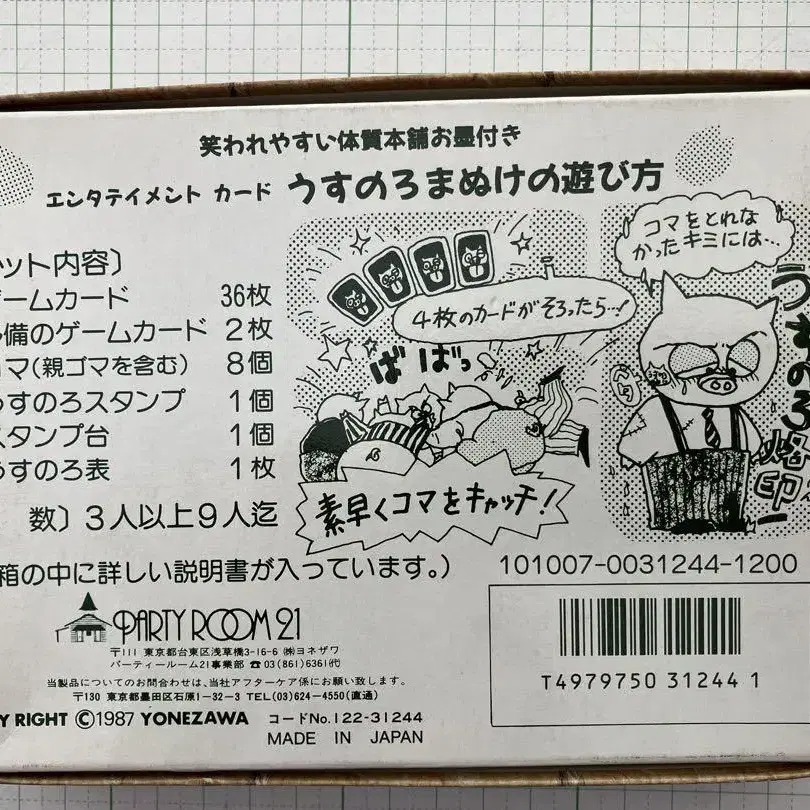 笑われやすい体質本舗お墨付き
エンタテイメント カード うすのろまぬけの遊び方
ット内容〕
ゲームカード 36枚
備のゲームカード 2枚
コマ(親ゴマを含む) 8個
うすのろスタンプ 1個
スタンプ台 1個
うすのろ表 1枚
数〕3人以上9人迄
箱の中に詳しい説明書が入っています。)
4枚のカードがそろったら…!
ば ばっ
素早くコマをキャッチ!
コマをとれな
かったキミには…
うすのろ烙印
101007-0031244-1200
PARTY ROOM 21
〒111 東京都台東区浅草橋3-16-6 ㈱ヨネザワ
パーティールーム21事業部 ☎03(861)6361㈹
当製品についてのお問合わせは、当社アフターケア係にお願い致します。
〒130 東京都墨田区石原1-32-3 TEL(03)624-4550(直通)
Y RIGHT ©1987 YONEZAWA コードNo.122-31244
MADE IN JAPAN
T4979750 31244 1